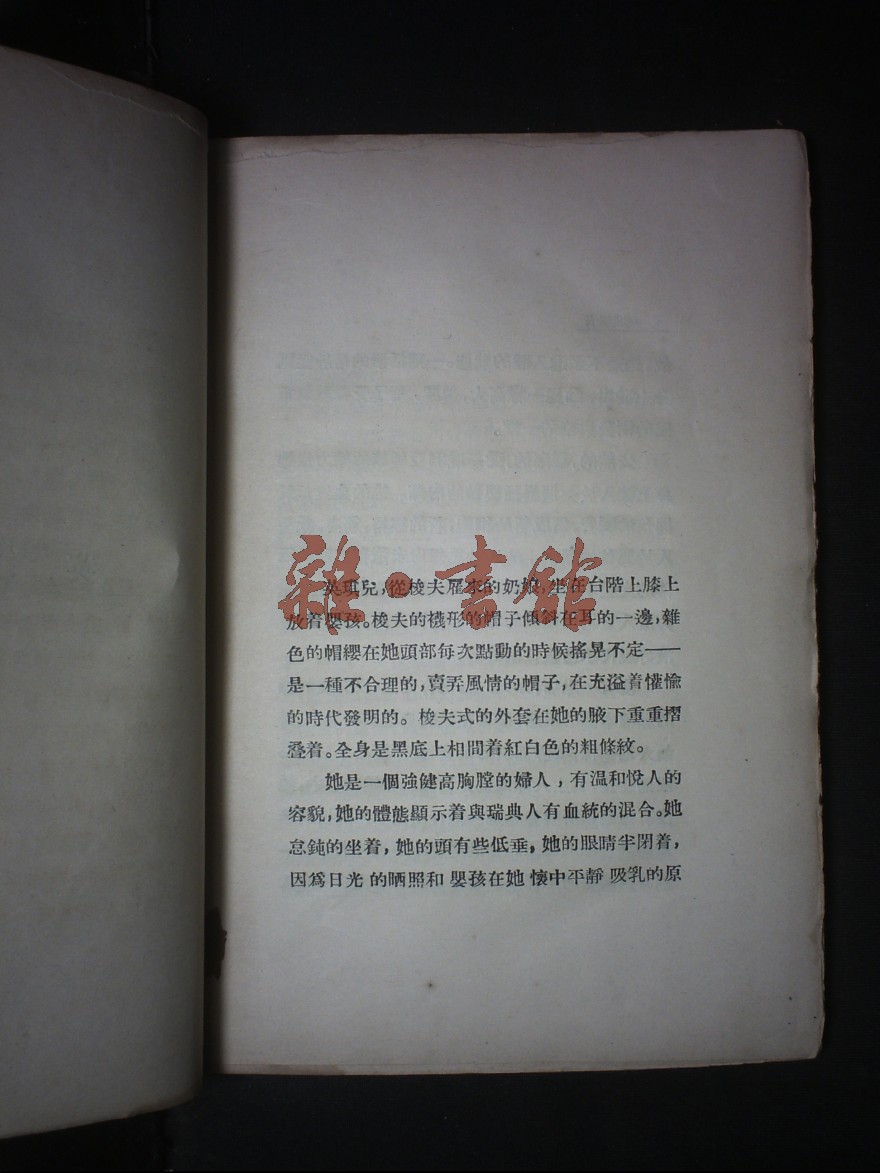 雜·書館
英琪兒,從梭夫雇來的奶娘,坐在台階上膝上
放着嬰孩。梭夫的襪形的帽子傾斜在耳的一邊,雜
色的帽纓在她頭部每次點動的時候搖晃不定——
是一種不合理的,賣弄風情的帽子,在充溢着懽愉
的時代發明的。梭夫式的外套在她的腋下重重摺
叠着。全身是黑底上相間着紅白色的粗條紋。
她是一個強健高胸膛的婦人,有温和悅人的
容貌,她的體態顯示着與瑞典人有血統的混合。她
怠鈍的坐着,她的頭有些低垂,她的眼睛半閉着,
因爲日光的晒照和嬰孩在她懷中平靜吸乳的原